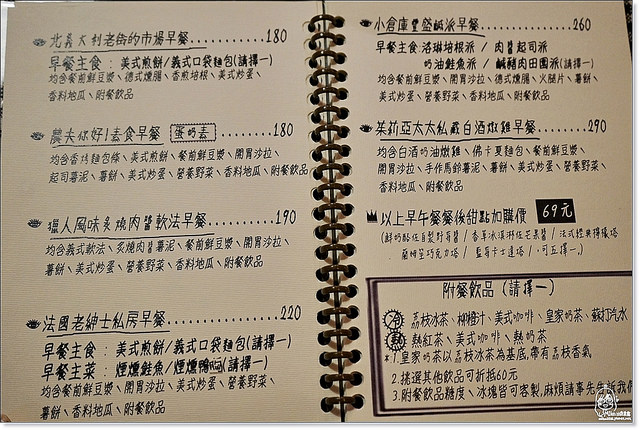 北義大利老街的市場早餐..........180
早餐主食：美式煎餅/義式口袋麵包(請擇一)
均含餐前鮮豆漿、德式燻腸、香煎培根、美式炒蛋、
香料地瓜、附餐飲品
農夫你好!素食早餐 蛋奶素.........180
均含香烤麵包條、美式煎餅、餐前鮮豆漿、開胃沙拉、
起司薯泥、薯餅、美式炒蛋、營養野菜、香料地瓜、附餐飲品
獵人風味炙燒肉醬軟法早餐.........190
均含義式軟法、炙燒肉醬薯泥、餐前鮮豆漿、開胃沙拉、
薯餅、美式炒蛋、營養野菜、香料地瓜、附餐飲品
法國老紳士私房早餐..............220
早餐主食：美式煎餅/義式口袋麵包(請擇一)
早餐主菜：煙燻鮭魚/煙燻鴨胸(請擇一)
均含餐前鮮豆漿、開胃沙拉、美式炒蛋、營養野菜、
薯餅、香料地瓜、附餐飲品
小倉庫豐盛鹹派早餐..............260
早餐主食:洛琳培根派/肉醬起司派
奶油鮭魚派/鹹豬肉田園派(請擇一)
均含餐前鮮豆漿、開胃沙拉、德式燻腸、火腿片、薯餅、
美式炒蛋、營養野菜、香料地瓜、附餐飲品
茱莉亞太太私藏白酒燉雞早餐.......290
均含白酒奶油燉雞、佛卡夏麵包、餐前鮮豆漿、
開胃沙拉、手作馬鈴薯泥、薯餅、美式炒蛋、營養野菜、
香料地瓜、附餐飲品
以上早午餐餐後甜點加購價 69元
(鮮奶酪佐自製野莓醬/香草冰淇淋佐芒果醬/法式經典檸檬塔
/藍莓卡士達塔/可五擇一)
附餐飲品(請擇一)
冰 荔枝冰茶、柳橙汁、美式咖啡、皇家奶茶、蘇打汽水
熱 熱紅茶、美式咖啡、熱奶茶
*1.皇家奶茶以荔枝冰茶為基底,帶有荔枝香氣
2.挑選其他飲品可折抵60元
3.附餐飲品糖度、冰塊皆可客製,麻煩請事先告訴我們